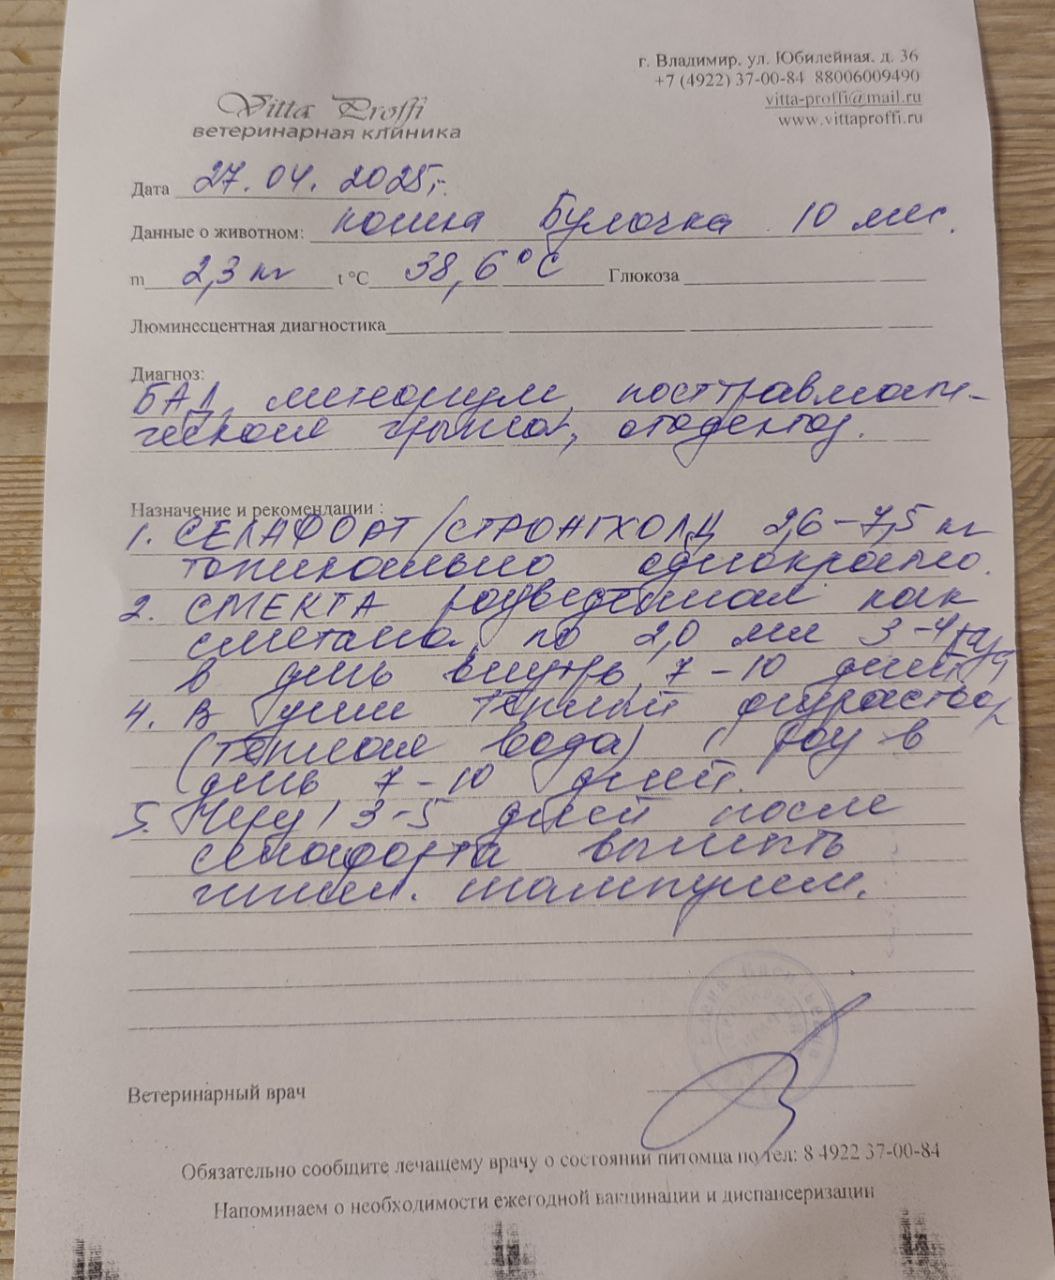 Vitta Proffi
ветеринарная клиника
г. Владимир. ул. Юбилейная. д. 36
+7 (4922) 37-00-84 88006009490
vitta-proffi@mail.ru
www.vittaproffi.ru
Дата 27.04.2025г.
Данные о животном: кошка Булочка 10 мес.
m 2,3 кг t °C 38,6 °C Глюкоза
Люминесцентная диагностика
Диагноз:
БАД, метеоризм, посттравмати-
ческая грыжа, отодектоз.
Назначение и рекомендации :
1. СЕЛАФОРТ/СТРОНГХОЛД 2,6-7,5 кг
топикально однократно.
2. СМЕКТА разведённая как
сметана, по 2,0 мл 3-4 раза
в день внутрь 7-10 дней
4. В уши тёплый физраствор
(тёплая вода) 1 раз в
день 7-10 дней.
5. Через 3-5 дней после
селафорта вымыть
гипоал. шампунем.
Ветеринарный врач
Обязательно сообщите лечащему врачу о состоянии питомца по тел: 8 4922 37-00-84
Напоминаем о необходимости ежегодной вакцинации и диспансеризации